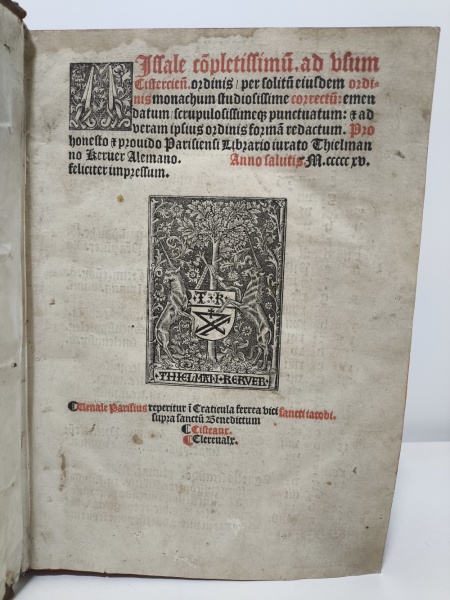 Missale cōpletissimū. ad vsum
Cistercieñ. ordinis / per solitū eiusdem ordi-
nis monachum studiosissime correctū: emen
datum / scrupulosissimeqꝫ punctuatum: ⁊ ad
veram ipsius ordinis formā redactum. Pro
honesto ⁊ prouido Parisiensi Librario iurato Thielman
no Keruer Alemano. Anno salutis M.ccccc xv.
feliciter impressum.
T K
THIELMAN KERVER
Uenale Parisius reperitur ī Craticula ferrea vici sancti iacobi.
supra sanctū Benedictum
Cisteaux.
Clereualx.